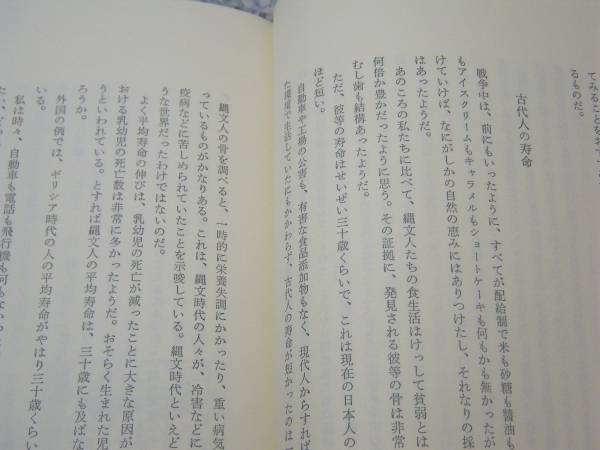 てみることをお
るものだ。
古代人の寿命
戦争中は、前にもいったように、すべてが配給制で米も砂糖も醬油も
もアイスクリームもキャラメルもショートケーキも何もかも無かったが
けていけば、なにがしかの自然の恵みにはありつけたし、それなりの採
はあったようだ。
あのころの私たちに比べて、縄文人たちの食生活はけっして貧弱とは
何倍か豊かだったように思う。その証拠に、発見される彼等の骨は非常
むし歯も結構あったようだ。
ただ、彼等の寿命はせいぜい三十歳くらいで、これは現在の日本人の
ほど短い。
自動車や工場の公害も、有害な食品添加物もなく、現代人からすれば
た環境で生活していたにもかかわらず、古代人の寿命が短かったのは一
縄文人の骨を調べると、一時的に栄養失調にかかったり、重い病気
っているものがかなりある。これは、縄文時代の人々が、冷害などに
疫病などに苦しめられていたことを示唆している。縄文時代といえど
うな世界だったわけではないのだ。
よく平均寿命の伸びは、乳幼児の死亡が減ったことに大きな原因が
おける乳幼児の死亡数は非常に多かったようだ。おそらく生まれた児
うといわれている。とすれば縄文人の平均寿命は、三十歳にも及ばな
ろうか。
外国の例では、ギリシア時代の人の平均寿命がやはり三十歳くらい
いる。
私は時々、自動車も電話も飛行機も何もな